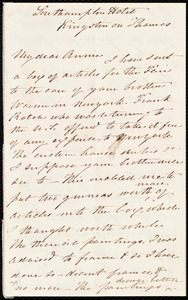 Southampton Hotel
Kingston on Thames
My dear Annie
I have sent
a box of articles for the Fair
to the care of your brother
Warren in New York. Frank
was returning to
the U.S. offered to take it free
of any expense to New York
the custom house
I suppose your brother
see to this enabled me to
put two guineas worth more
articles into the box which
I thought worth while
the three oil paintings I was
advised to frame & so I have
done so - decent frames &
no more - the paintings